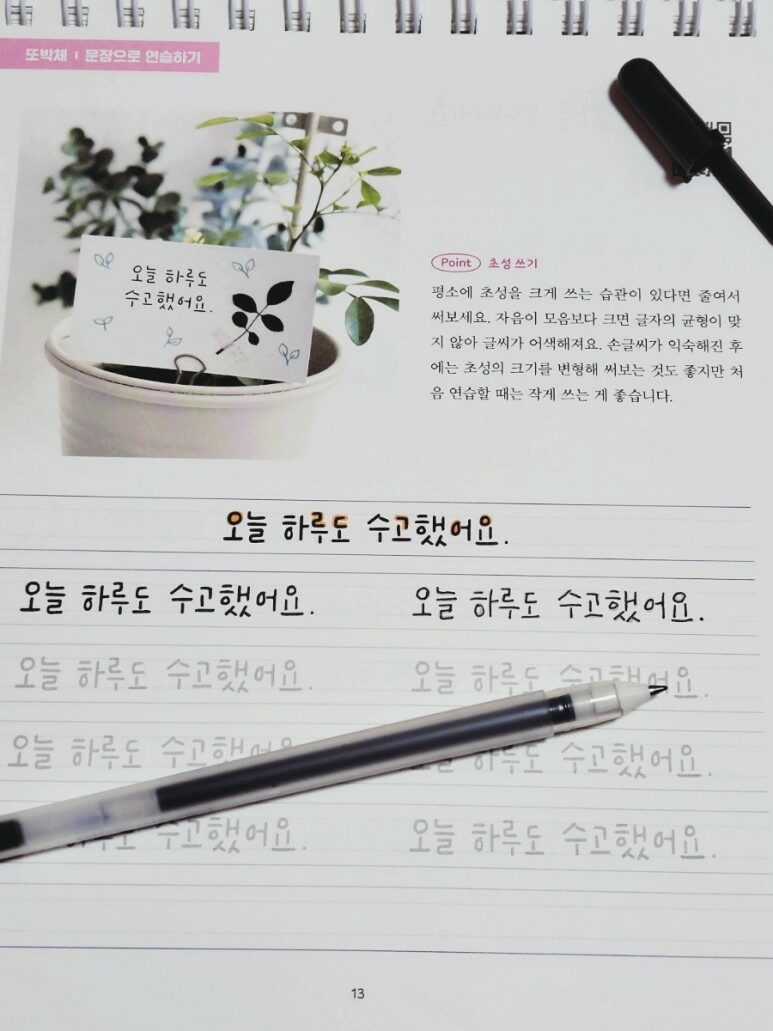 또박체 | 문장으로 연습하기
오늘 하루도
수고했어요.
Point 초성 쓰기
평소에 초성을 크게 쓰는 습관이 있다면 줄여서
써보세요. 자음이 모음보다 크면 글자의 균형이 맞
지 않아 글씨가 어색해져요. 손글씨가 익숙해진 후
에는 초성의 크기를 변형해 써보는 것도 좋지만 처
음 연습할 때는 작게 쓰는 게 좋습니다.
오늘 하루도 수고했어요.
오늘 하루도 수고했어요. 오늘 하루도 수고했어요.
오늘 하루도 수고했어요. 오늘 하루도 수고했어요.
오늘 하루도 수고했어요. 하루도 수고했어요.
수고했어요. 오늘 하루도 수고했어요.
13